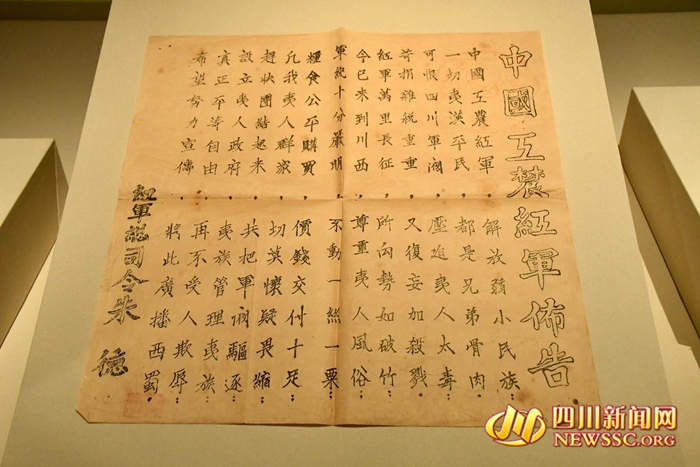 中國工農紅軍佈告
中國工农紅軍 解放弱小民族
一切夷漢平民 都是兄弟骨肉
可恨四川軍閥 壓迫夷人太毒
苛捐雜税重重 又復妄加殺戮
紅軍萬里長征 所向勢如破竹
今已来到川西 尊重夷人風俗
軍紀十分嚴明 不動一絲一粟
糧食公平購買 價錢交付十足
凡我夷人群众 切莫懷疑畏縮
趕快團結起来 共把軍閥驅逐
設立夷人政府 夷族管理夷族
真正平等自由 再不受人欺辱
希望努力宣傳 將此廣播西蜀
紅軍総司令朱德
四川新闻网
NEWSSC.ORG